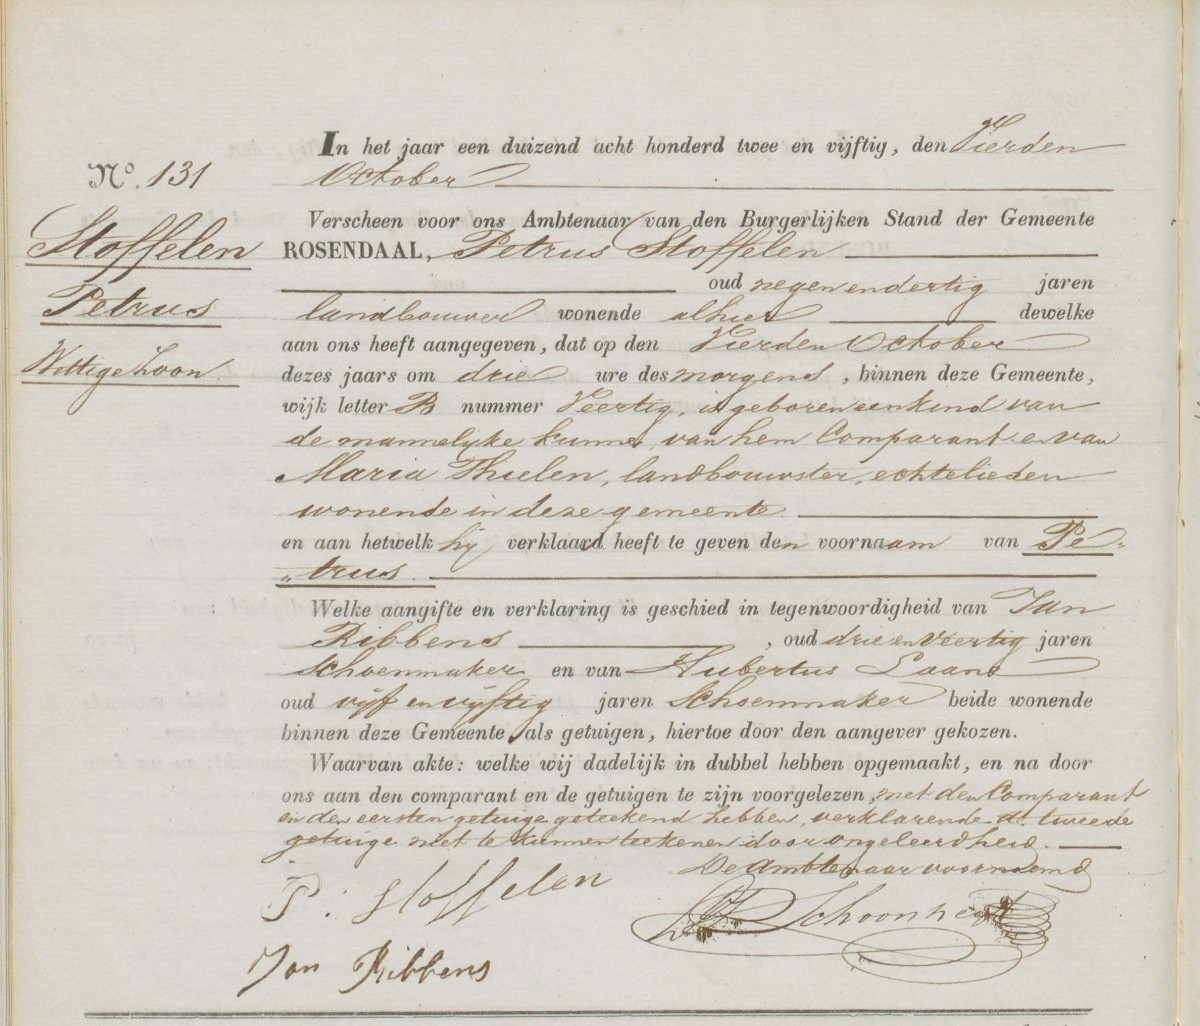 In het jaar een duizend acht honderd twee en vijftig, den Vierden
No. 131
October
Verscheen voor ons Ambtenaar van den Burgerlijken Stand der Gemeente
Stoffelen
ROSENDAAL, Petrus Stoffelen
oud negen en dertig jaren
Petrus
landbouwer wonende alhier dewelke
aan ons heeft aangegeven, dat op den Vierden October
Wettige Zoon
dezes jaars om drie ure des morgens, binnen deze Gemeente,
wijk letter B nummer Veertig, is geboren een kind van
de mannelijke kunne, van hem Comparant en van
Maria Thielen, landbouwster, echtelieden
wonende in deze gemeente.
en aan hetwelk hij verklaard heeft te geven den voornaam van Pe„
„trus.
Welke aangifte en verklaring is geschied in tegenwoordigheid van Jan
Ribbens, oud drie en Veertig jaren
Schoenmaker en van Hubertus Laans
oud vijf en vijftig jaren Schoenmaker beide wonende
binnen deze Gemeente, als getuigen, hiertoe door den aangever gekozen.
Waarvan akte: welke wij dadelijk in dubbel hebben opgemaakt, en na door
ons aan den comparant en de getuigen te zijn voorgelezen, met den Comparant
en den eersten getuige geteekend hebben, verklarende de tweede
getuige niet te kunnen teekenen door ongeleerdheid.
De Ambtenaar voornoemd
P. Stoffelen
Schoonheyt
Jan Ribbens